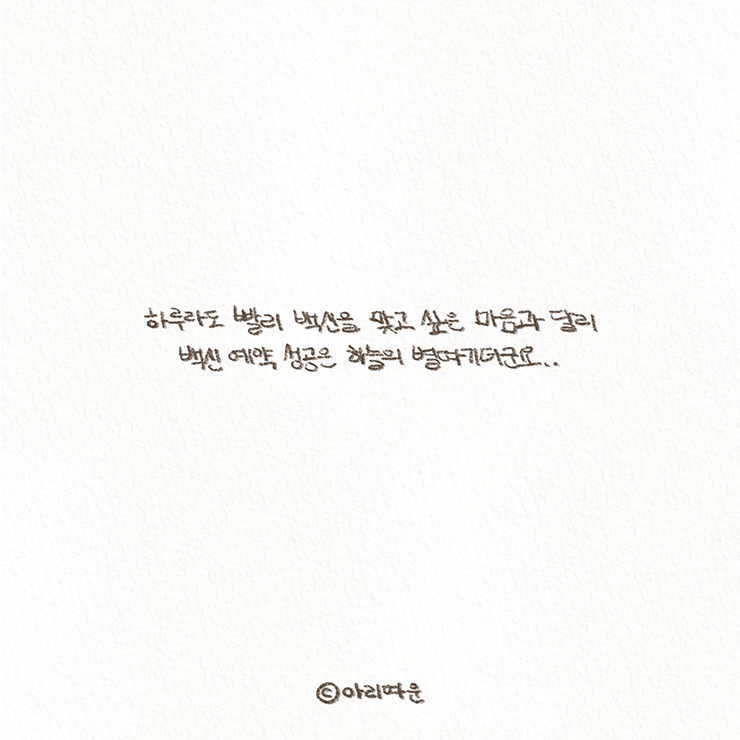 하루라도 빨리 백신을 맞고 싶은 마음과 달리
백신 예약 성공은 하늘의 별따기더군요..
©아리따운